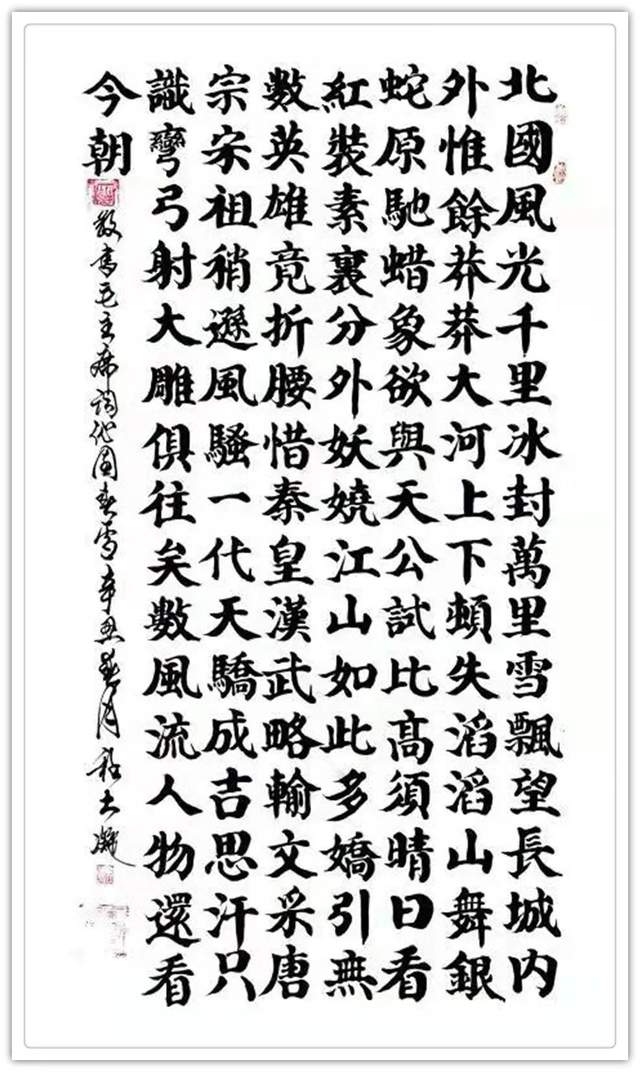 北國風光千里冰封萬里雪飄望長城内
外惟餘莽莽大河上下頓失滔滔山舞銀
蛇原馳蜡象欲與天公試比高須晴日看
紅裝素裏分外妖嬈江山如此多嬌引無
數英雄竟折腰惜秦皇漢武略輸文采唐
宗宋祖稍遜風騷一代天驕成吉思汗只
識彎弓射大雕俱往矣數風流人物還看
今朝
敬書毛主席詞沁園春雪